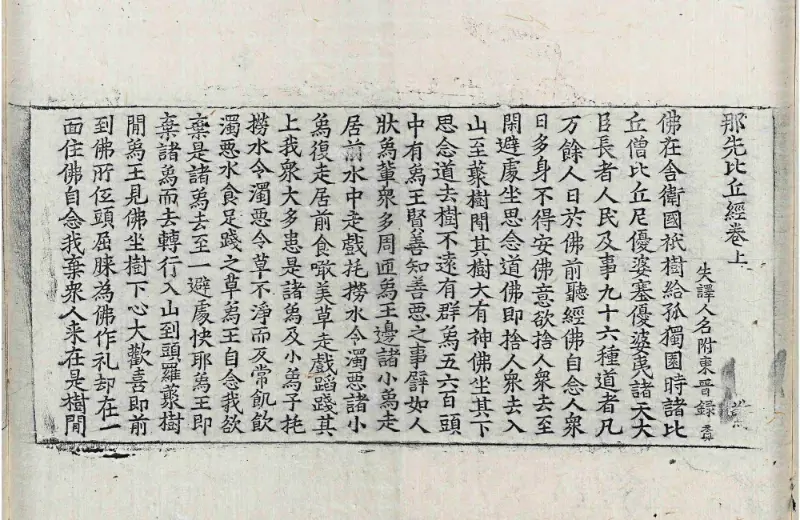 那先比丘經卷上
失譯人名附東晉錄
佛在舍衛國祇樹給孤獨園時諸比
丘僧比丘尼優婆塞優婆夷諸天大
臣長者人民及事九十六種道者凡
万餘人日於佛前聽經佛自念人衆
日多身不得安佛意欲捨人衆去至
閑避處坐思念道佛即捨人衆去入
山至藂樹閒其樹大有神佛坐其下
思念道去樹不遠有群𤉢五六百頭
中有𤉢王賢善知善惡之事譬如人
狀𤉢輩衆多周匝𤉢王邊諸小𤉢走
居前水中走戲撓撈水令濁惡諸小
𤉢復走居前食噉美草走戲蹈踐其
上我衆大多患是諸𤉢及小𤉢子撓
撈水令濁惡令草不淨而反常飢飲
濁惡水食足踐之草𤉢王自念我欲
棄是諸𤉢去至一避處快耶𤉢王即
棄諸𤉢而去轉行入山到頭羅藂樹
閒𤉢王見佛坐樹下心大歡喜即前
到佛所低頭屈膝為佛作礼却在一
面住佛自念我棄衆人来在是樹閒